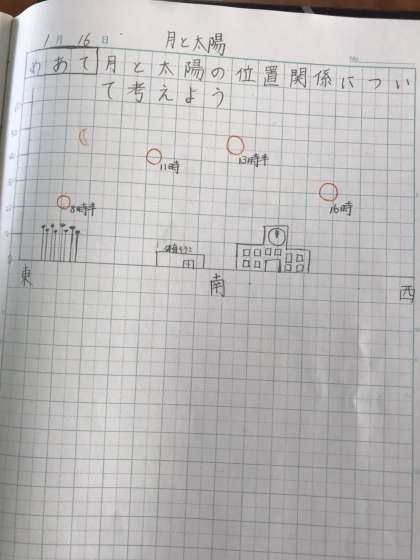 1月16日 月と太陽
No.
めあて 月と太陽の位置関係につい
て考えよう
11時
13時半
8時半
16時
東
南
西